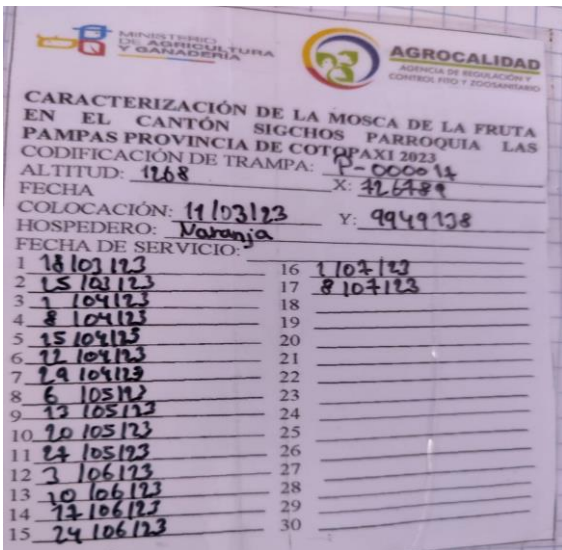 MINISTERIO
DE AGRICULTURA
Y GANADERÍA
AGROCALIDAD
AGENCIA DE REGULACIÓN Y
CONTROL FITO Y ZOOSANITARIO
CARACTERIZACIÓN DE LA MOSCA DE LA FRUTA
EN EL CANTÓN SIGCHOS PARROQUIA LAS
PAMPAS PROVINCIA DE COTOPAXI 2023
CODIFICACIÓN DE TRAMPA: P-000014
ALTITUD: 1268 X: 726789
FECHA
COLOCACIÓN: 11/03/23 Y: 9949138
HOSPEDERO: Naranja
FECHA DE SERVICIO:
1 18/03/23
2 25/03/23
3 1/04/23
4 8/04/23
5 15/04/23
6 22/04/23
7 29/04/23
8 6/05/23
9 13/05/23
10 20/05/23
11 27/05/23
12 3/06/23
13 10/06/23
14 17/06/23
15 24/06/23
16 1/07/23
17 8/07/23
18
19
20
21
22
23
24
25
26
27
28
29
30